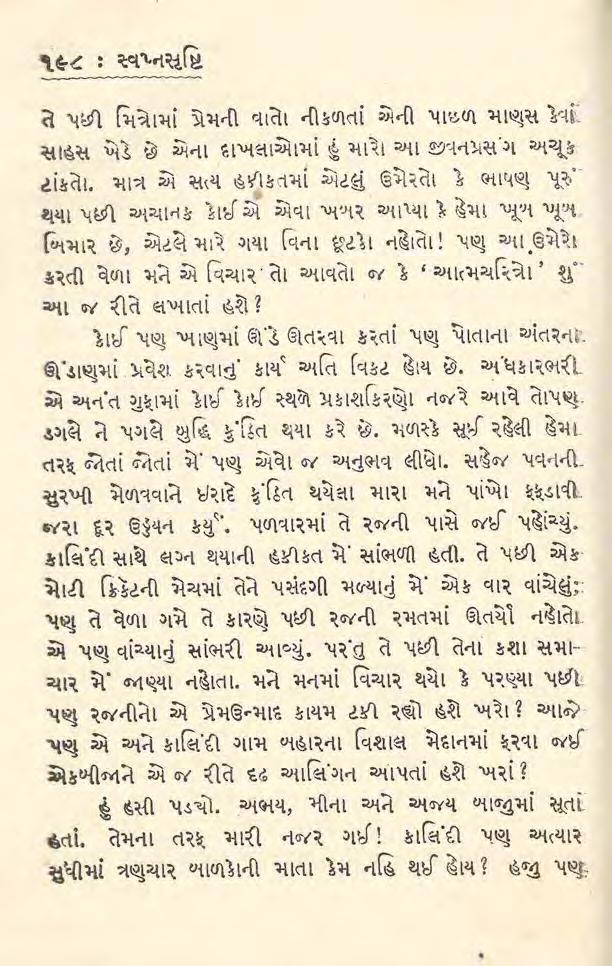 ૧૯૮ : સ્વપ્નસૃષ્ટિ
તે પછી મિત્રોમાં પ્રેમની વાતો નીકળતાં એની પાછળ માણસ કેવાં
સાહસ ખેડે છે એના દાખલાઓમાં હું મારો આ જીવનપ્રસંગ અચૂક
ટાંકતો. માત્ર એ સત્ય હકીકતમાં એટલું ઉમેરતો કે ભાષણ પૂરું
થયા પછી અચાનક કોઈ એ એવા ખબર આપ્યા કે હેમા ખૂબ ખૂબ
બિમાર છે, એટલે મારે ગયા વિના છૂટકો નહોતો! પણ આ ઉમેરો
કરતી વેળા મને એ વિચાર તો આવતો જ કે ‘ આત્મચરિત્રો ’ શું
આ જ રીતે લખાતાં હશે?
કોઈ પણ ખાણમાં ઊંડે ઊતરવા કરતાં પણ પોતાના અંતરના
ઊંડાણમાં પ્રવેશ કરવાનું કાર્ય અતિ વિકટ હોય છે. અંધકારભરી
એ અનંત ગુફામાં કોઈ કોઈ સ્થળે પ્રકાશકિરણો નજરે આવે તોપણ
ડગલે ને પગલે બુદ્ધિ કુંઠિત થયા કરે છે. મળસ્કે સૂઈ રહેલી હેમા
તરફ જોતાં જોતાં મેં પણ એવો જ અનુભવ લીધો. સહેજ પવનની
સુરખી મેળવવાને ઇરાદે કુંઠિત થયેલા મારા મને પાંખો ફફડાવી
જરા દૂર ઉડ્ડયન કર્યું. પળવારમાં તે રજની પાસે જઈ પહોંચ્યું.
કાલિંદી સાથે લગ્ન થયાની હકીકત મેં સાંભળી હતી. તે પછી એક
મોટી ક્રિકેટની મેચમાં તેને પસંદગી મળ્યાનું મેં એક વાર વાંચેલું;
પણ તે વેળા ગમે તે કારણે પછી રજની રમતમાં ઊતર્યો નહોતો
એ પણ વાંચ્યાનું સાંભરી આવ્યું. પરંતુ તે પછી તેના કશા સમા-
ચાર મેં જાણ્યા નહોતા. મને મનમાં વિચાર થયો કે પરણ્યા પછી
પણ રજનીનો એ પ્રેમઉન્માદ કાયમ ટકી રહ્યો હશે ખરો? આજે
પણ એ અને કાલિંદી ગામ બહારના વિશાલ મેદાનમાં ફરવા જઈ
એકબીજાને એ જ રીતે દૃઢ આલિંગન આપતાં હશે ખરાં?
હું હસી પડ્યો. અભય, મીના અને અજય બાજુમાં સૂતાં
હતાં. તેમના તરફ મારી નજર ગઈ! કાલિંદી પણ અત્યાર
સુધીમાં ત્રણચાર બાળકોની માતા કેમ નહિ થઈ હોય? હજુ પણ